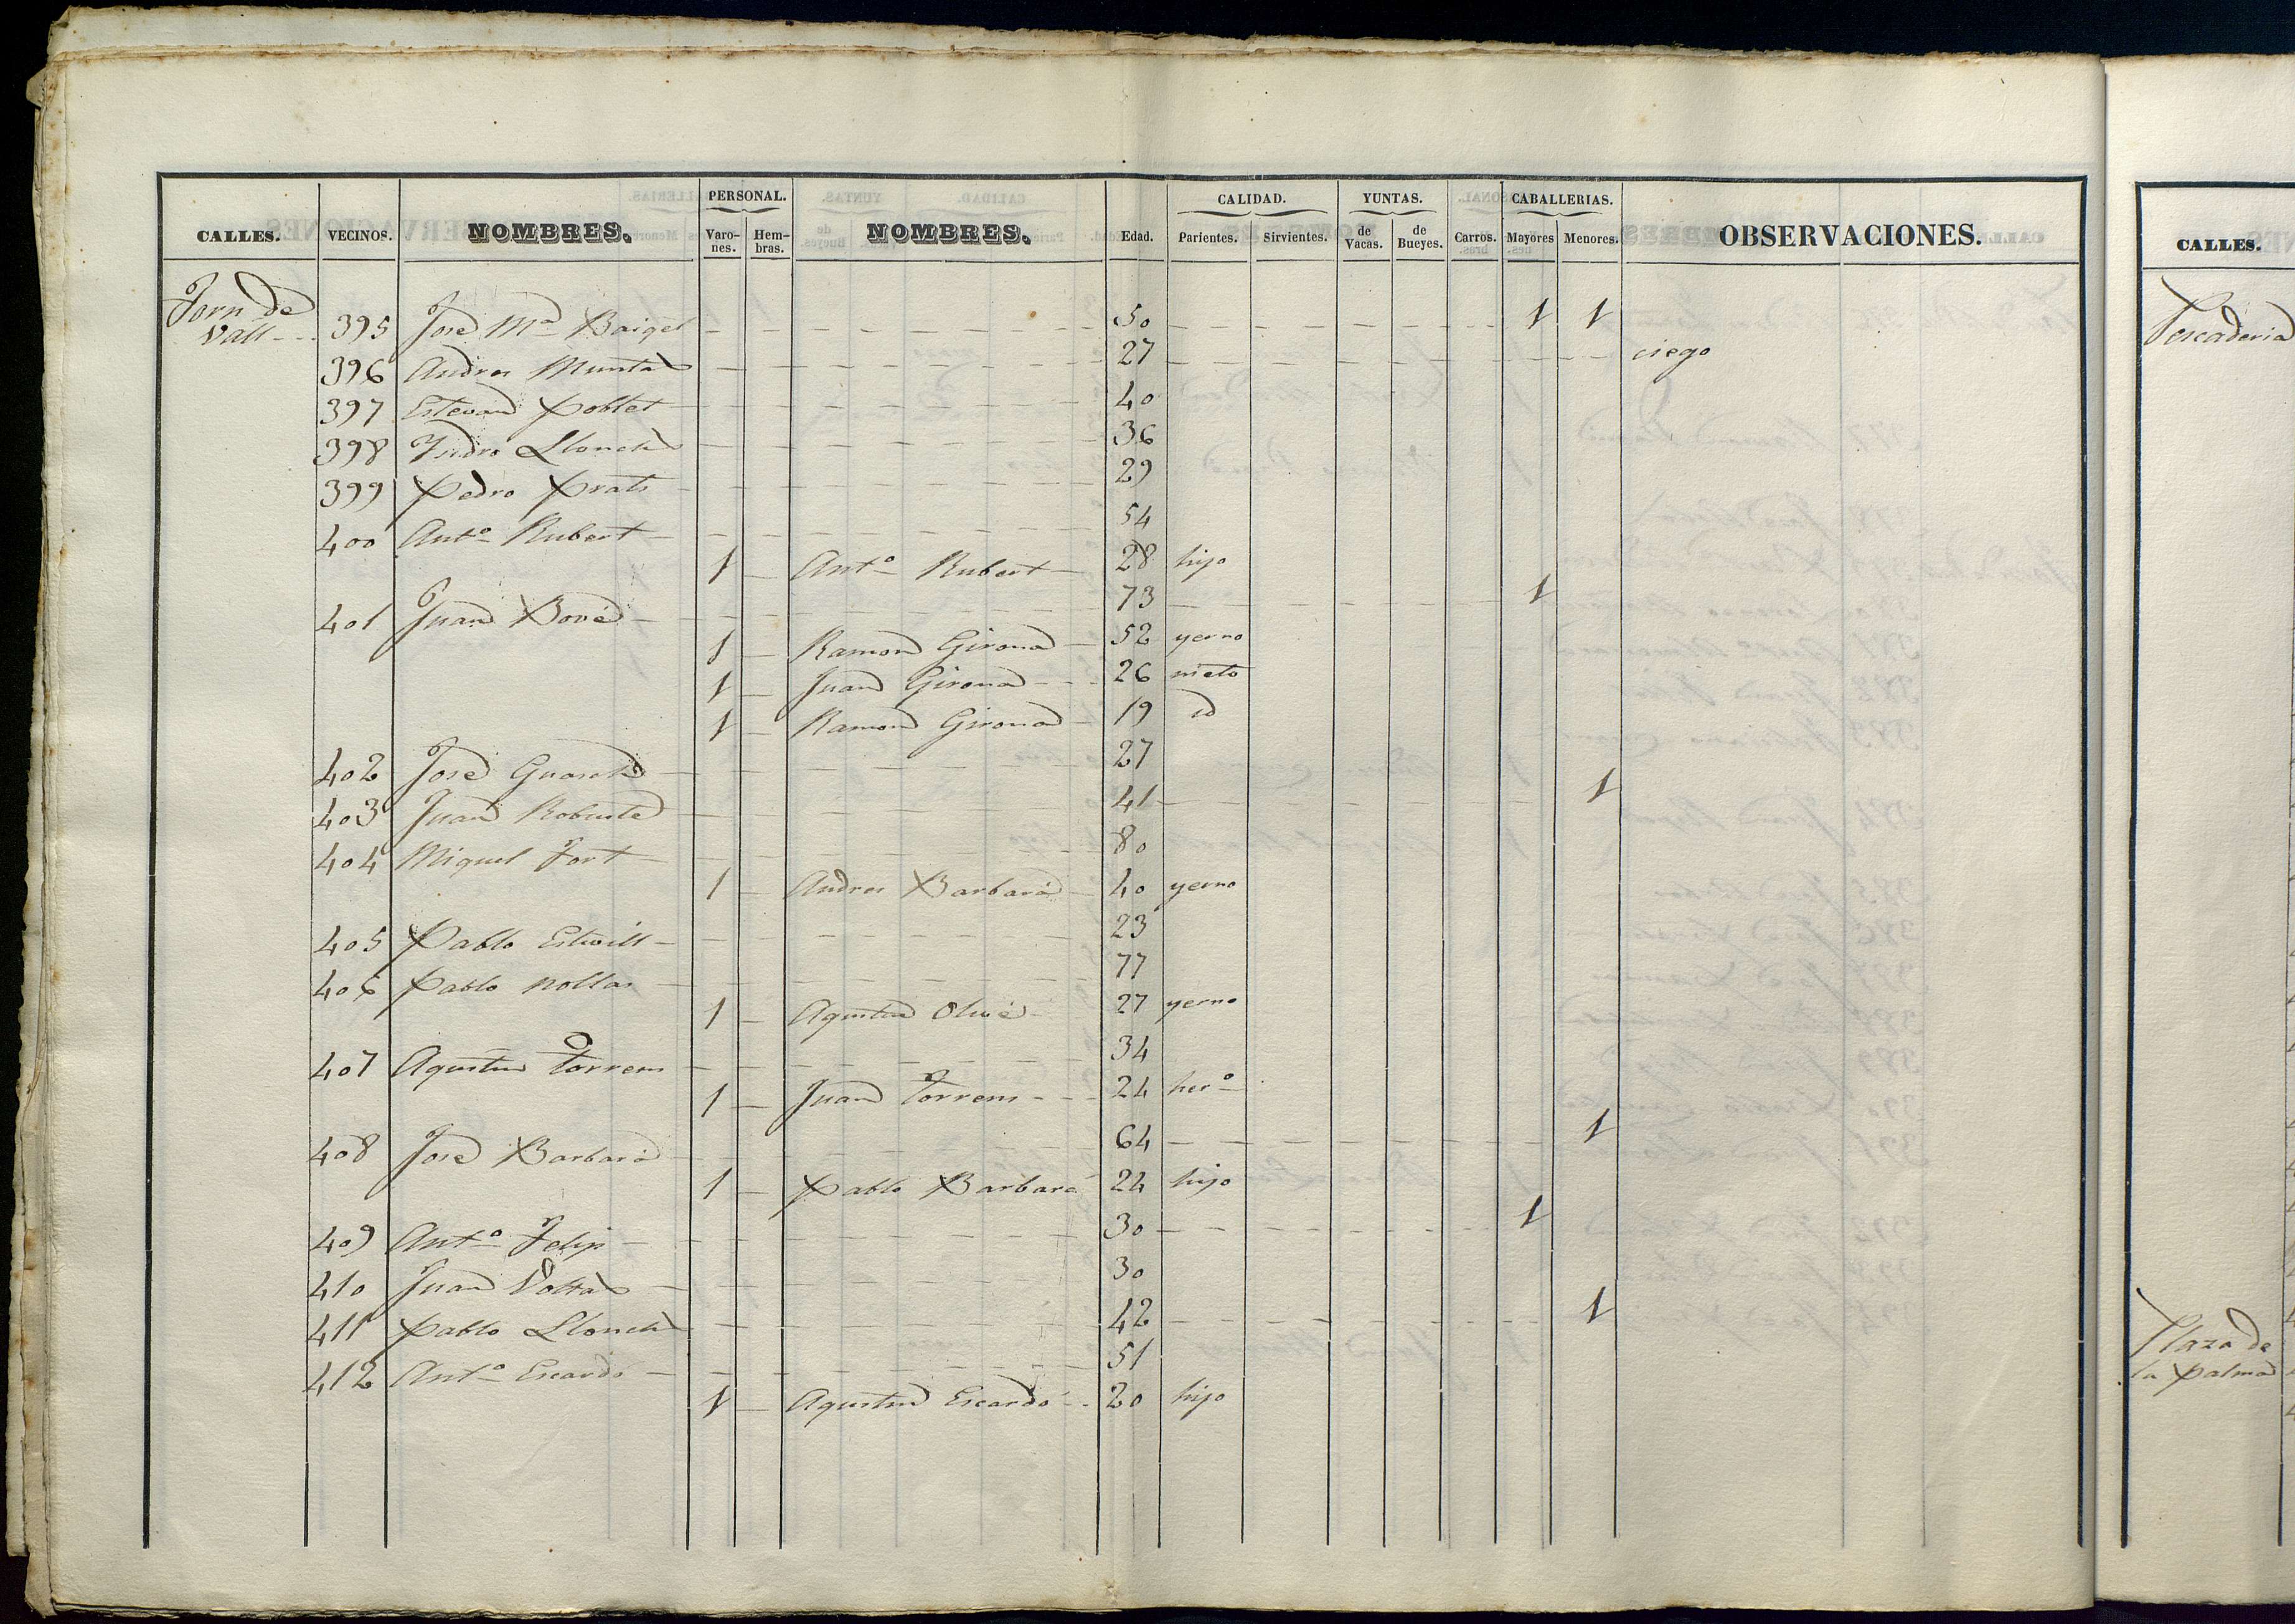 CALLES. VECINOS. NOMBRES. PERSONAL. NOMBRES. Edad. CALIDAD. YUNTAS. Carros. CABALLERIAS. OBSERVACIONES.
Varo-nes. Hem-bras. Parientes. Sirvientes. de Vacas. de Bueyes. Mayores Menores.
Forn de
Vall 395 Jose Mª 50 1 1
396 Andres Muntas 27 ciego
397 Estevan Poblet 40
398 Ysidro Llonch 36
399 Pedro Prats 29
400 Antº Rubert 54
1 Antº Rubert 28 hijo
401 Juan Bové 73 1
1 Ramon Girona 52 yerno
1 Juan Girona 26 nieto
1 Ramon Girona 19 id
402 José Guasch 27
403 Juan Robusté 41 1
404 Miguel Fort 80
1 Andres Barbará 40 yerno
405 Pablo Estivill 23
406 Pablo Nollas 77
1 Agustin Olivé 27 yerno
407 Agustin Torrens 34
1 Juan Torrens 24 herº
408 José Barbará 64 1
1 Pablo Barbará 24 hijo
409 Antº Felip 30 1
410 Juan Voltas 30
411 Pablo Llonch 42 1
412 Antº Escardó 51
1 Agustin Escardó 20 hijo
CALLES.
Pescaderia
Plaza de
la Palma